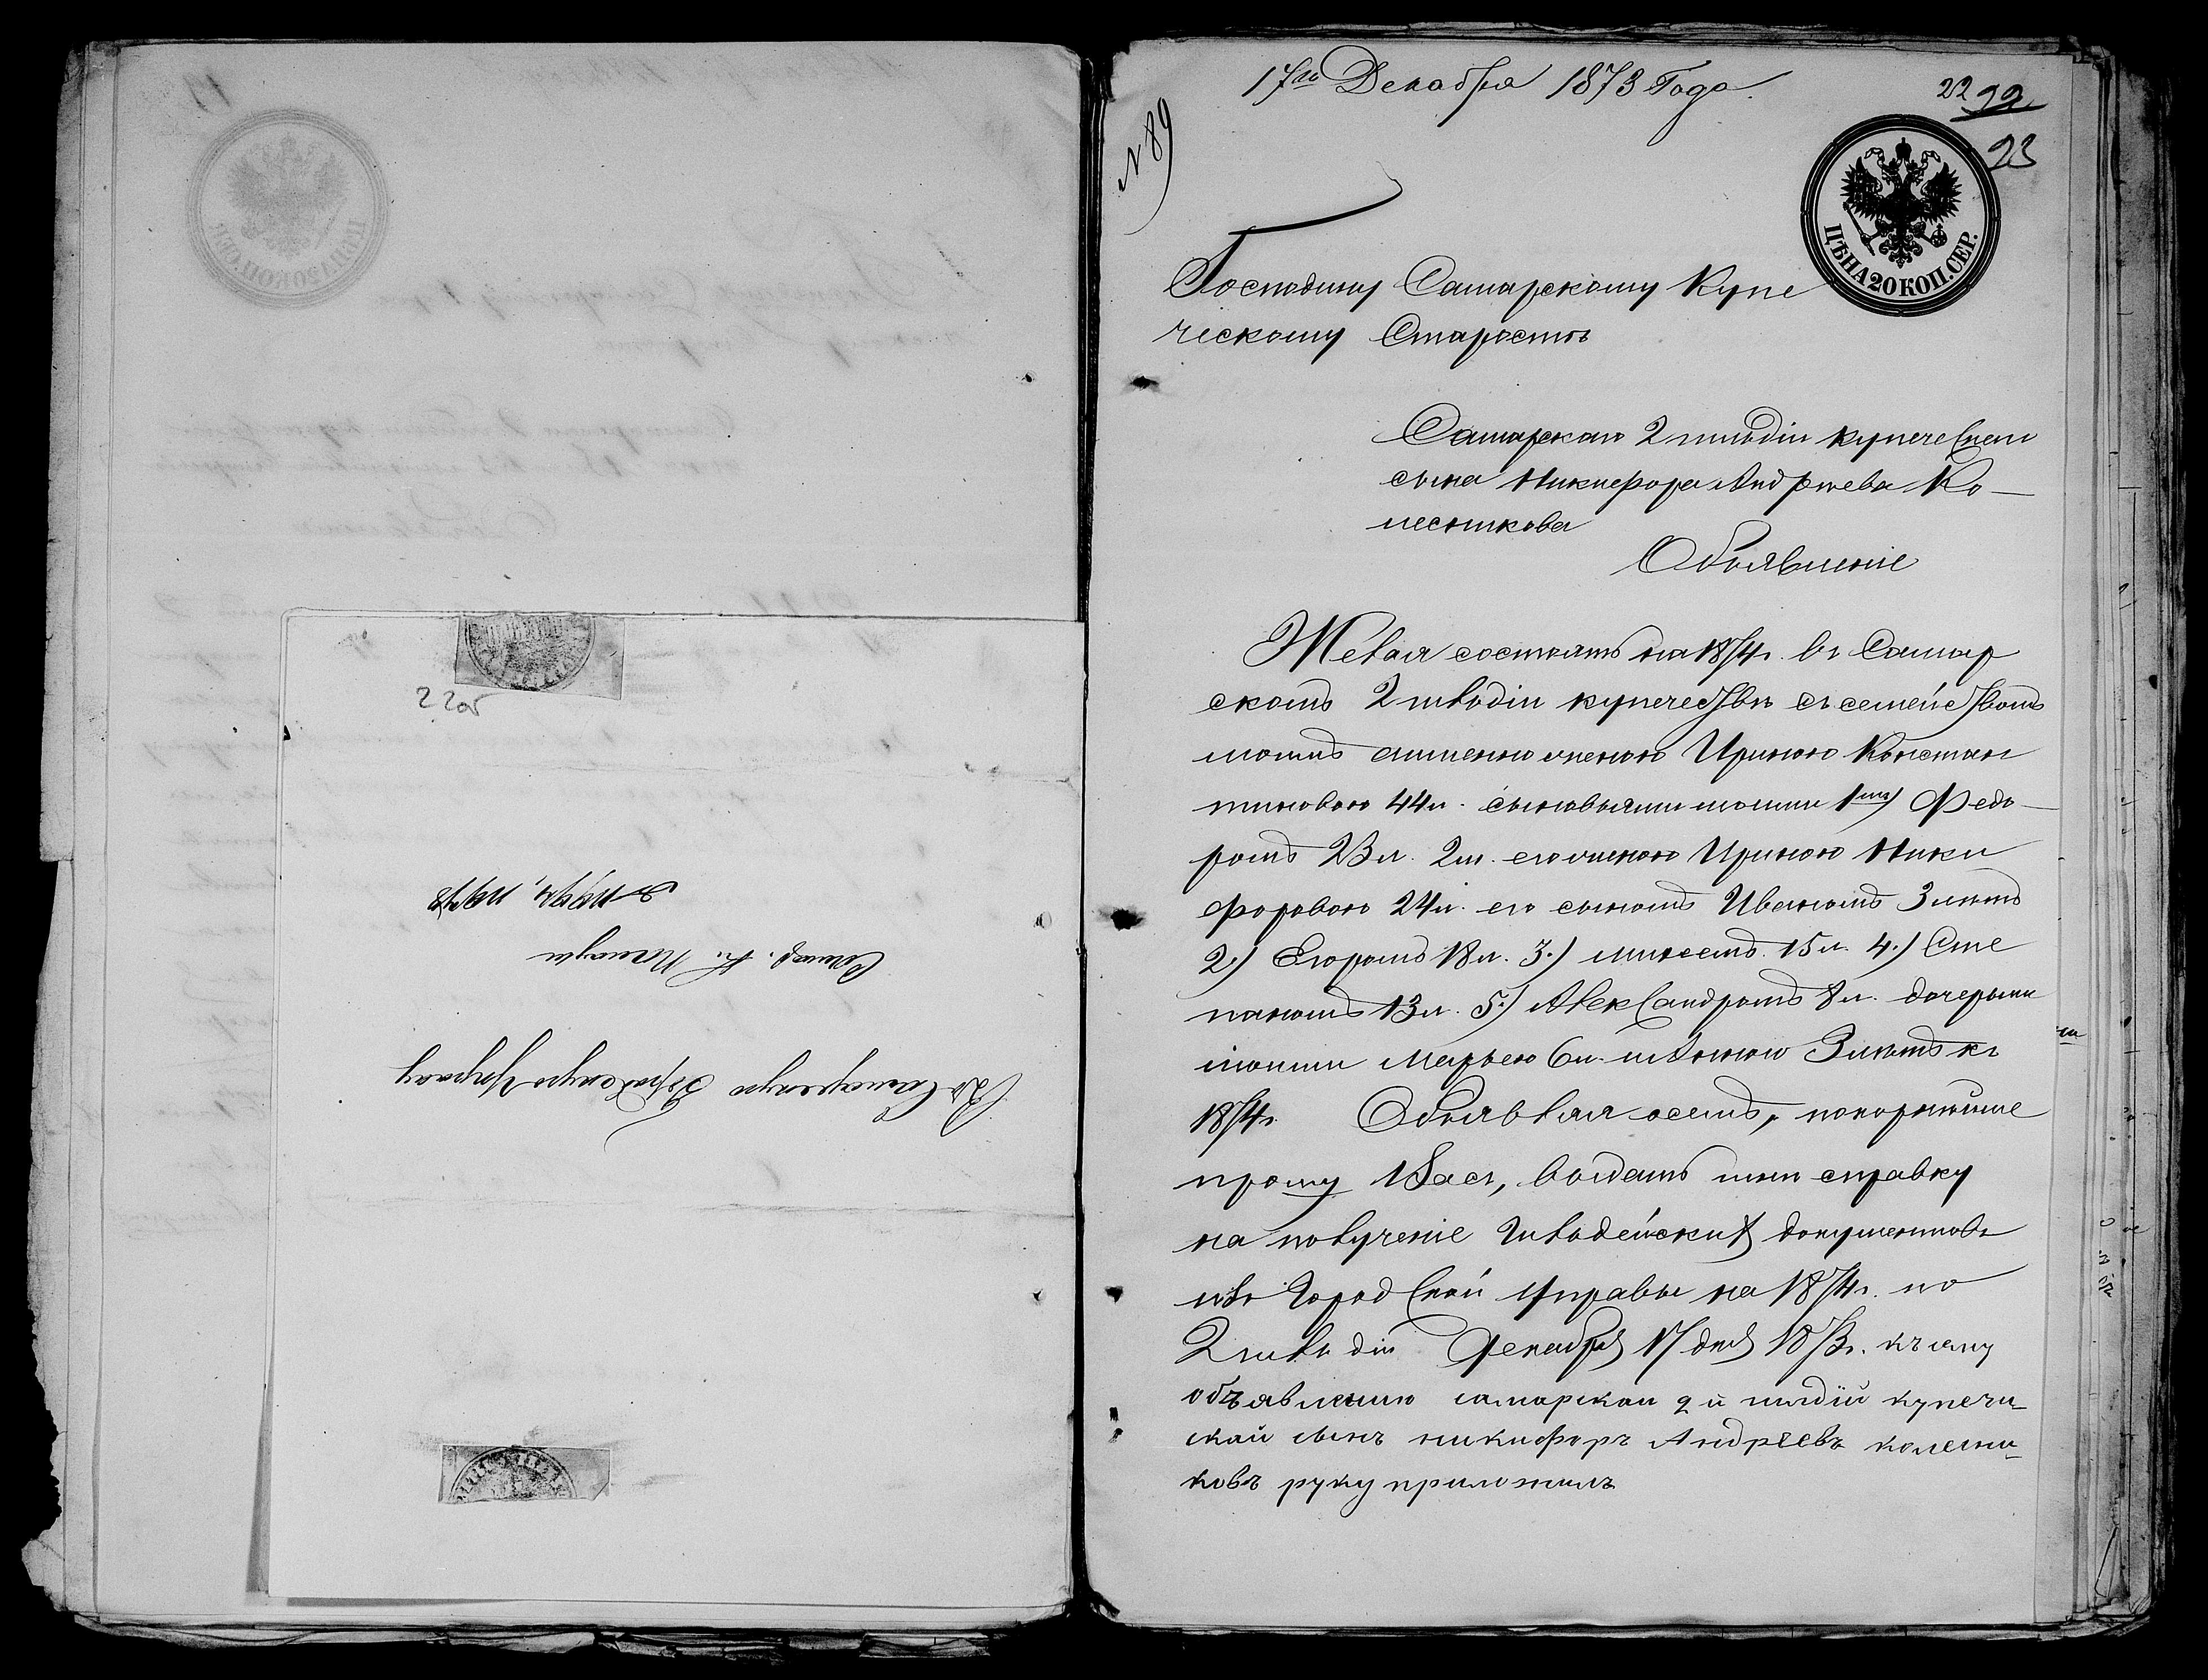 22об
17го Декабря 1873 Года.
22 22
23
№ 89
ЦѢНА 20 КОП. СЕР.
Господину Самарскому Купе
ческому Старостѣ
Самарскаго 2 гильдіи купеческаго
сына Никифора Андрѣева Ко-
лесникова
Объявленіе
Желая состоять на 1874г. въ Самар
скомъ 2 гильдіи купечествѣ съ семействомъ
моимъ женою Ириною Констан
тиновою 44л. сыновьями моими 1мъ) Федо-
ромъ 23л. его женою Ириною Ники
форовою 24л. его сыномъ Иваномъ 3 лѣтъ
2.) Егоромъ 18л. 3.) 15л. 4.) Сте
паномъ 13л. 5.) Александромъ 8л. дочерьми
моими Марьею 6л. и Анною 3 лѣтъ къ
1874г. Объявляя осемъ, покорнѣйше
прошу Васъ, выдать мнѣ справку
на полученіе Гильдейскихъ документовъ
изъ Городской Управы на 1874г. по
2 гильдіи Декабря 17 дня 1873г. къ сему
объявлению самарскаи 2й гилдіи купечи-
скаи сынъ никифоръ Андрѣевъ колесни-
ковъ руку приложилъ